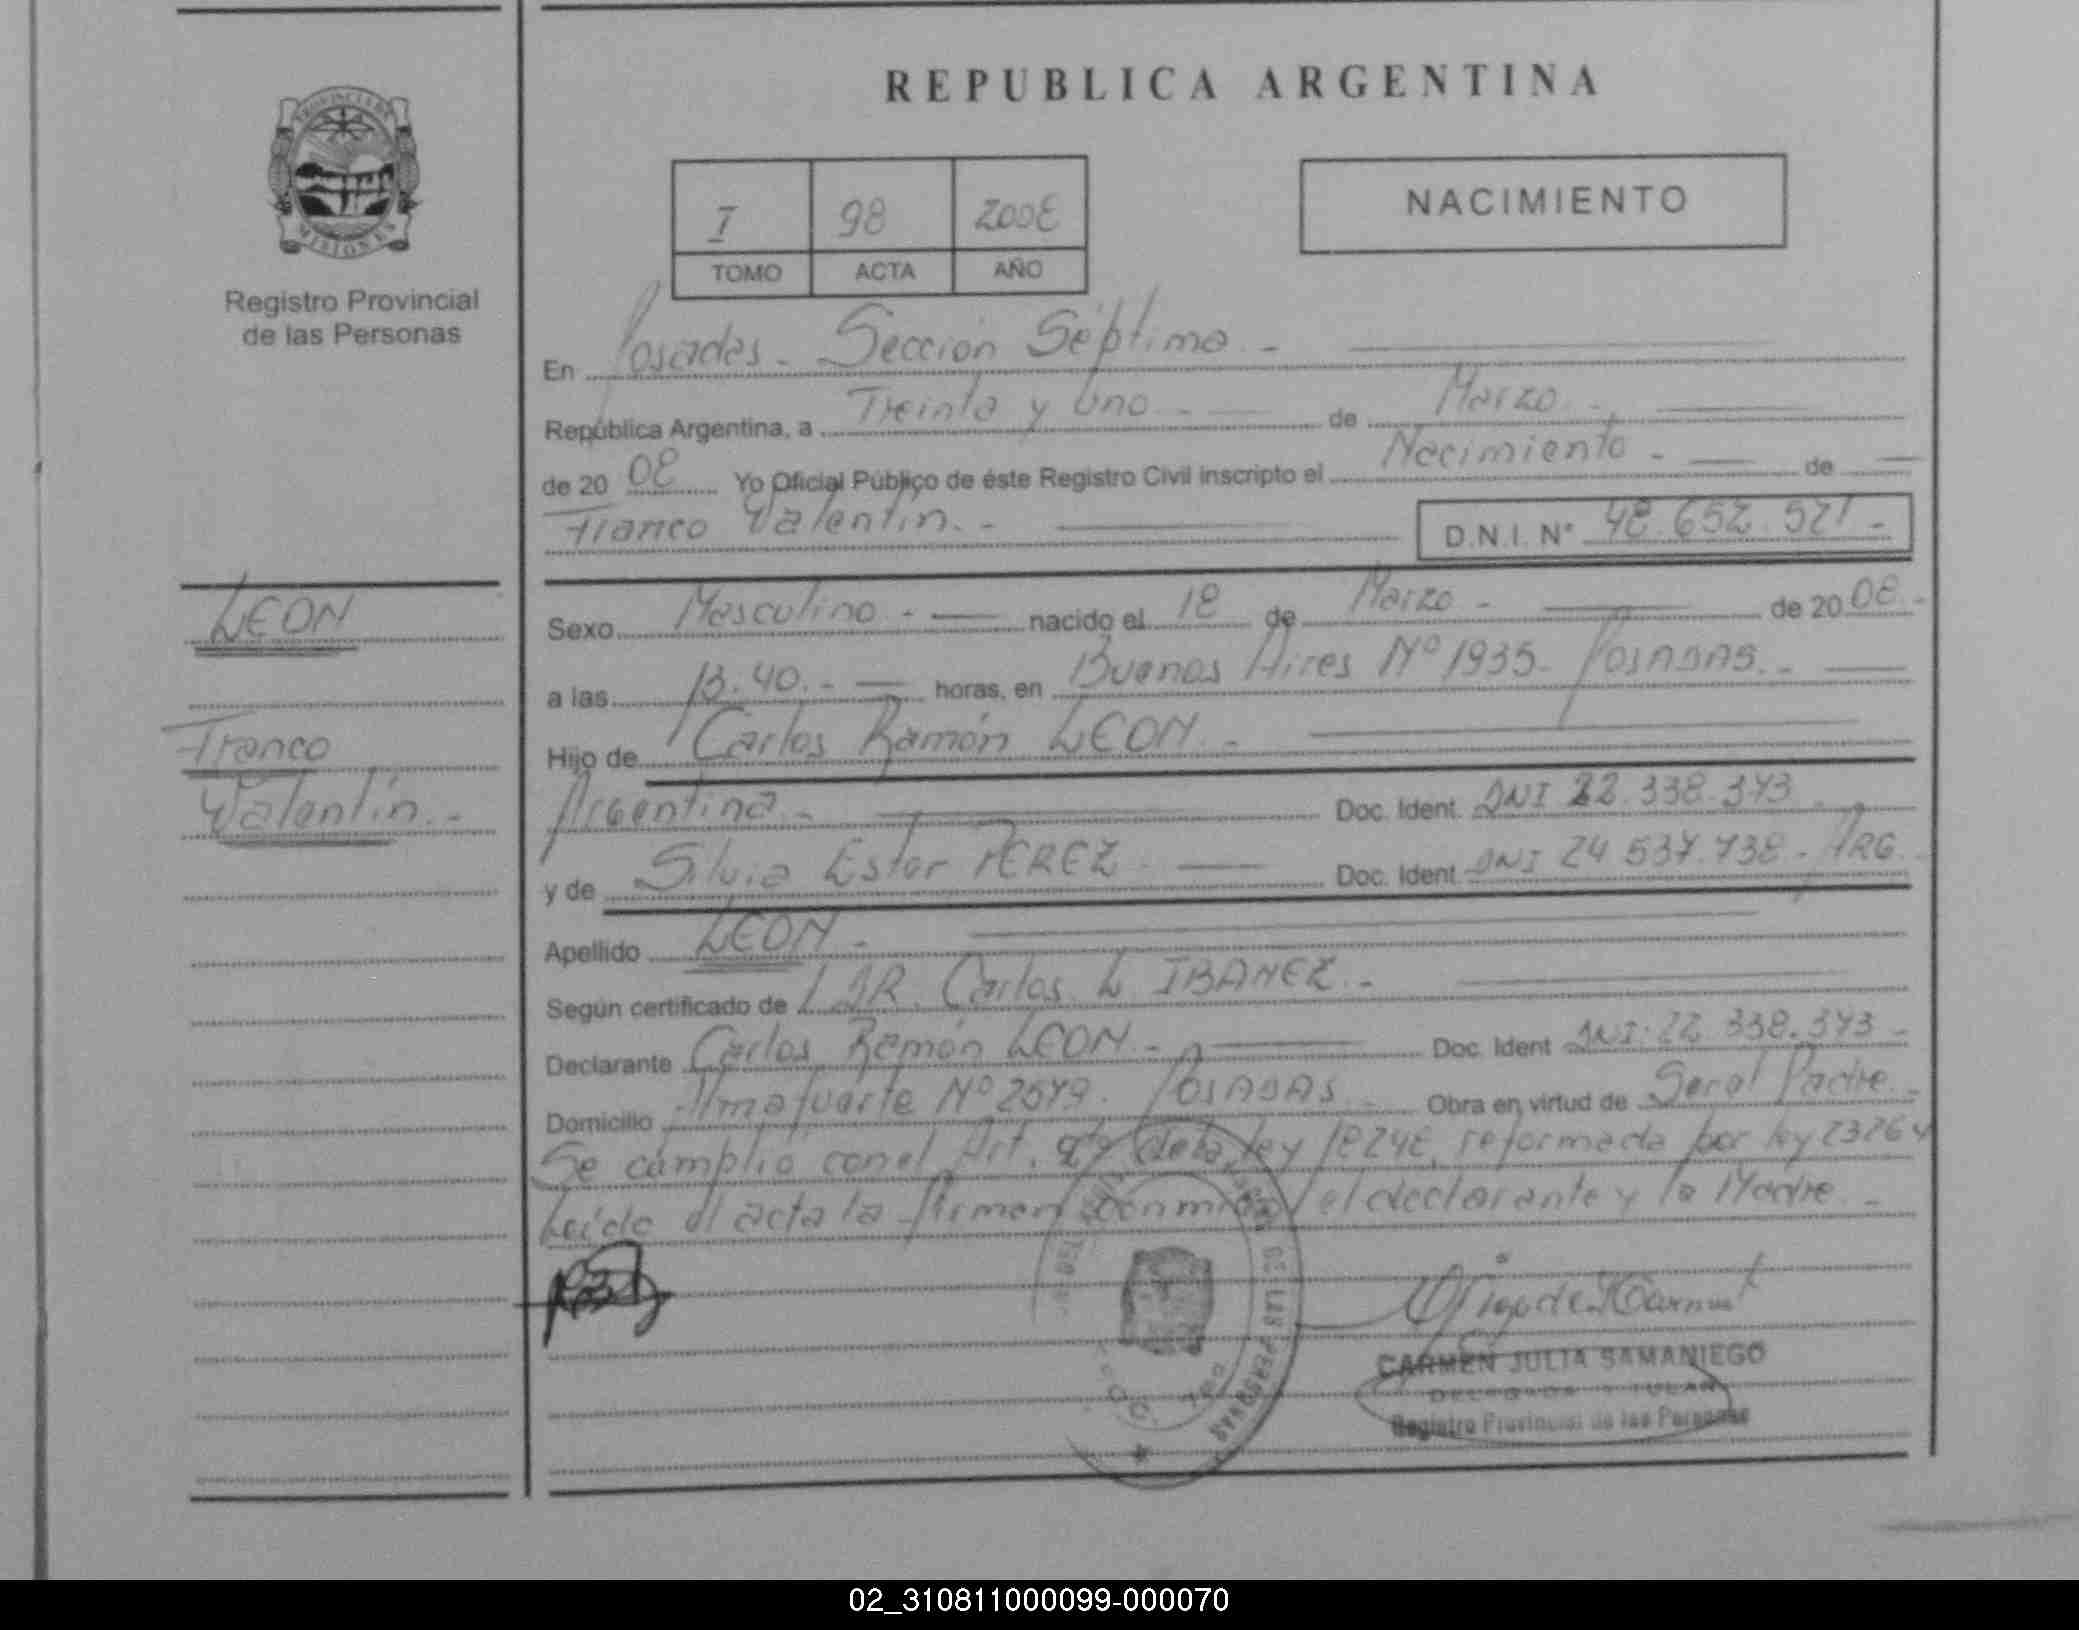 REPUBLICA ARGENTINA
PROVINCIA DE
MISIONES
Registro Provincial
de las Personas
I 98 2008
TOMO ACTA AÑO
NACIMIENTO
En Posadas - Sección Séptima. -
República Argentina, a Treinta y Uno - de Marzo - .
de 20 08 Yo Oficial Público de éste Registro Civil inscripto el Nacimiento - de
Franco Valentín. - D.N.I. N° 48.652.521 -
LEON
Franco
Valentín. -
Sexo Masculino - nacido el 18 de Marzo - de 20 08 -
a las 13.40. - horas, en Buenos Aires Nº 1935 - POSADAS. -
Hijo de Carlos Ramón LEON. -
Argentina. - Doc. Ident. DNI 22.338.373
y de Silvia Ester PEREZ - Doc. Ident. DNI 24 537.738 - ARG.
Apellido LEON -
Según certificado de DR. Carlos L IBAÑEZ. -
Declarante Carlos Ramón LEON. - Doc. Ident DNI: 22 338.373 -
Domicilio Almafuerte Nº 2579. POSADAS Obra en virtud de Ser el Padre -
Se cumplio con el Art. de la ley 18248, reformada por ley 23264
Leída el acta la firman conmigo el declarante y la Madre -
CARMEN JULIA SAMANIEGO
DELEGADA TITULAR
Registro Provincial de las Personas
DE LAS PERSONAS
02_310811000099-000070